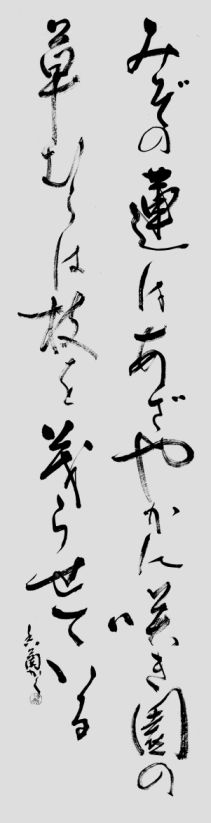 みぞの蓮はあざやかに咲き園の
草むらは枝を茂らせている